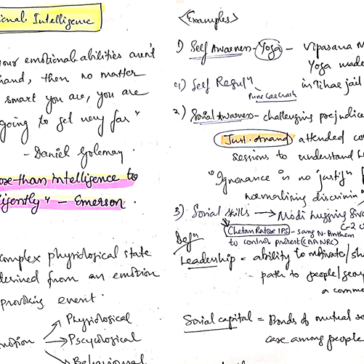 onal Intelligence
your emotional abilities aren't
hand, then no matter
smart you are, you are
going to get very far"
- Daniel Goleman
ore than intelligence to
ligently" - Emerson
complex physiological state
derived from an emotion
provoking event.
Physiological
Psycological
Behavioural
(Examples)
1) Self Awareness - Yoga - Vipasana
Yoga unde
in Tihar jail
Self Regulⁿ
2) Social Awareness - challenging prejudice
Just. Anand attended co
sessions to understand
"Ignorance is no justifⁿ
normalising discrimin
3) Social skills → Modi hugging
Chetan Rathor IPS - sang N. Anthem
to control protest (CAA NRC)
Defⁿ
Leadership = ability to motivate/
- path to people/
a comm
Social capital = Bonds of mutual
case among people